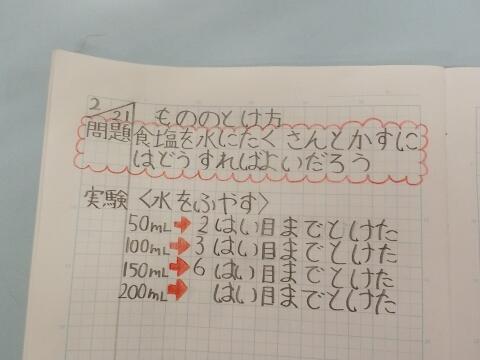 2/21 もののとけ方
問題 食塩を水にたくさんとかすに
はどうすればよいだろう
実験〈水をふやす〉
50mL→2はい目までとけた
100mL→3はい目までとけた
150mL→6はい目までとけた
200mL→ はい目までとけた